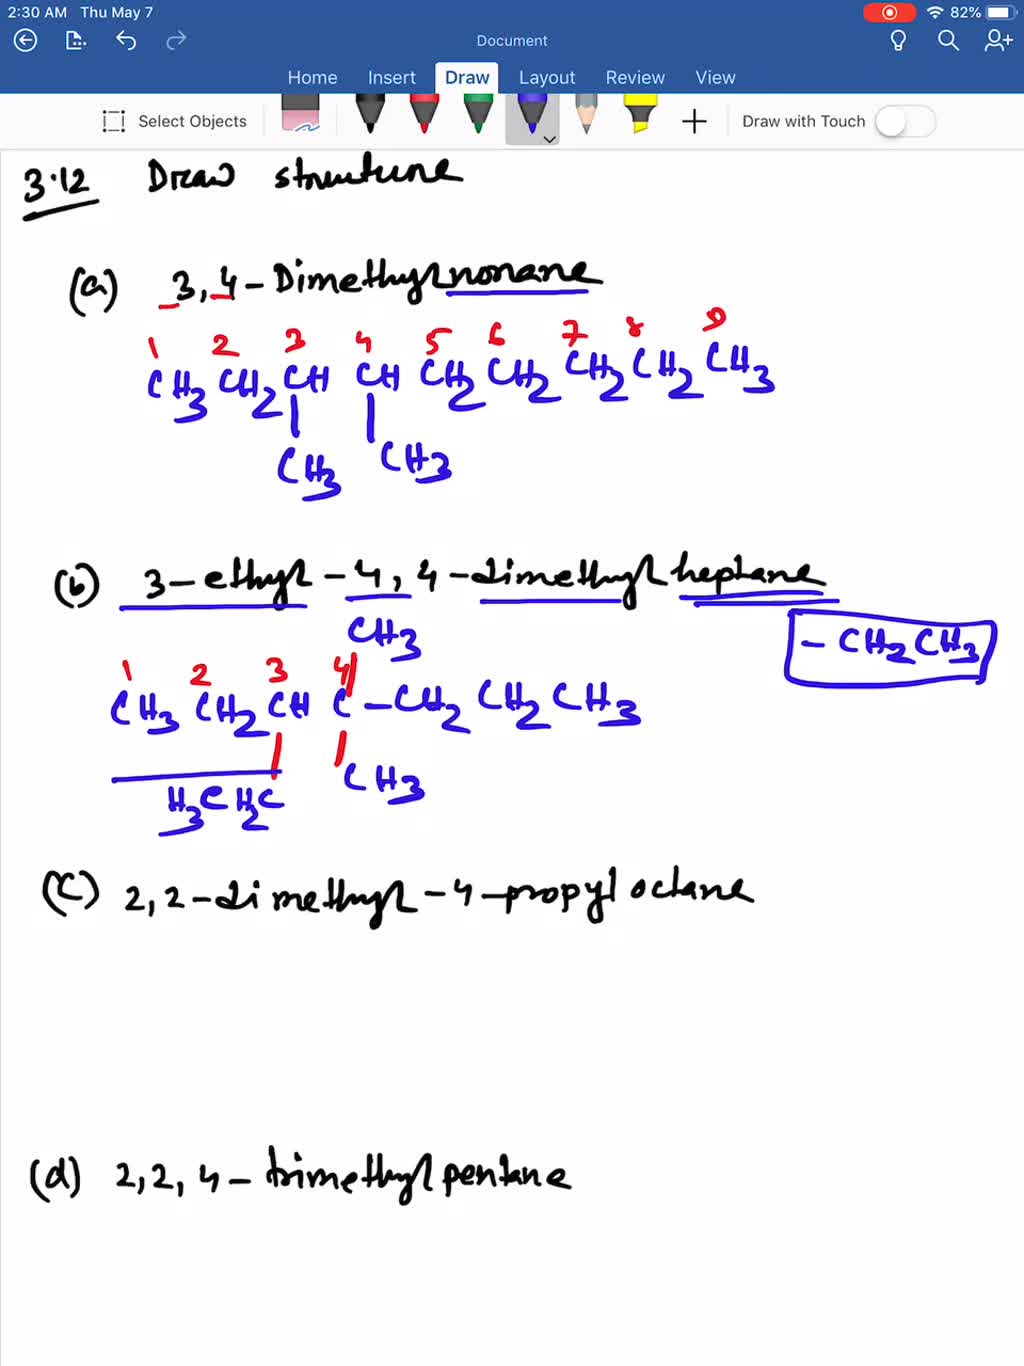 2:30 AM Thu May 7 82%
Document
Home Insert Draw Layout Review View
Select Objects Draw with Touch
3.12 Draw structure
(a) 3,4-Dimethylnonane
1 2 3 4 5 6 7 8 9
CH3 CH2 CH CH CH2 CH2 CH2 CH2 CH3
CH3 CH3
(b) 3-ethyl-4,4-dimethylheptane
CH3 -CH2CH3
1 2 3 4
CH3 CH2 CH C-CH2 CH2 CH3
H3C H2C CH3
(C) 2,2-dimethyl-4-propyloctane
(d) 2,2,4-trimethylpentane